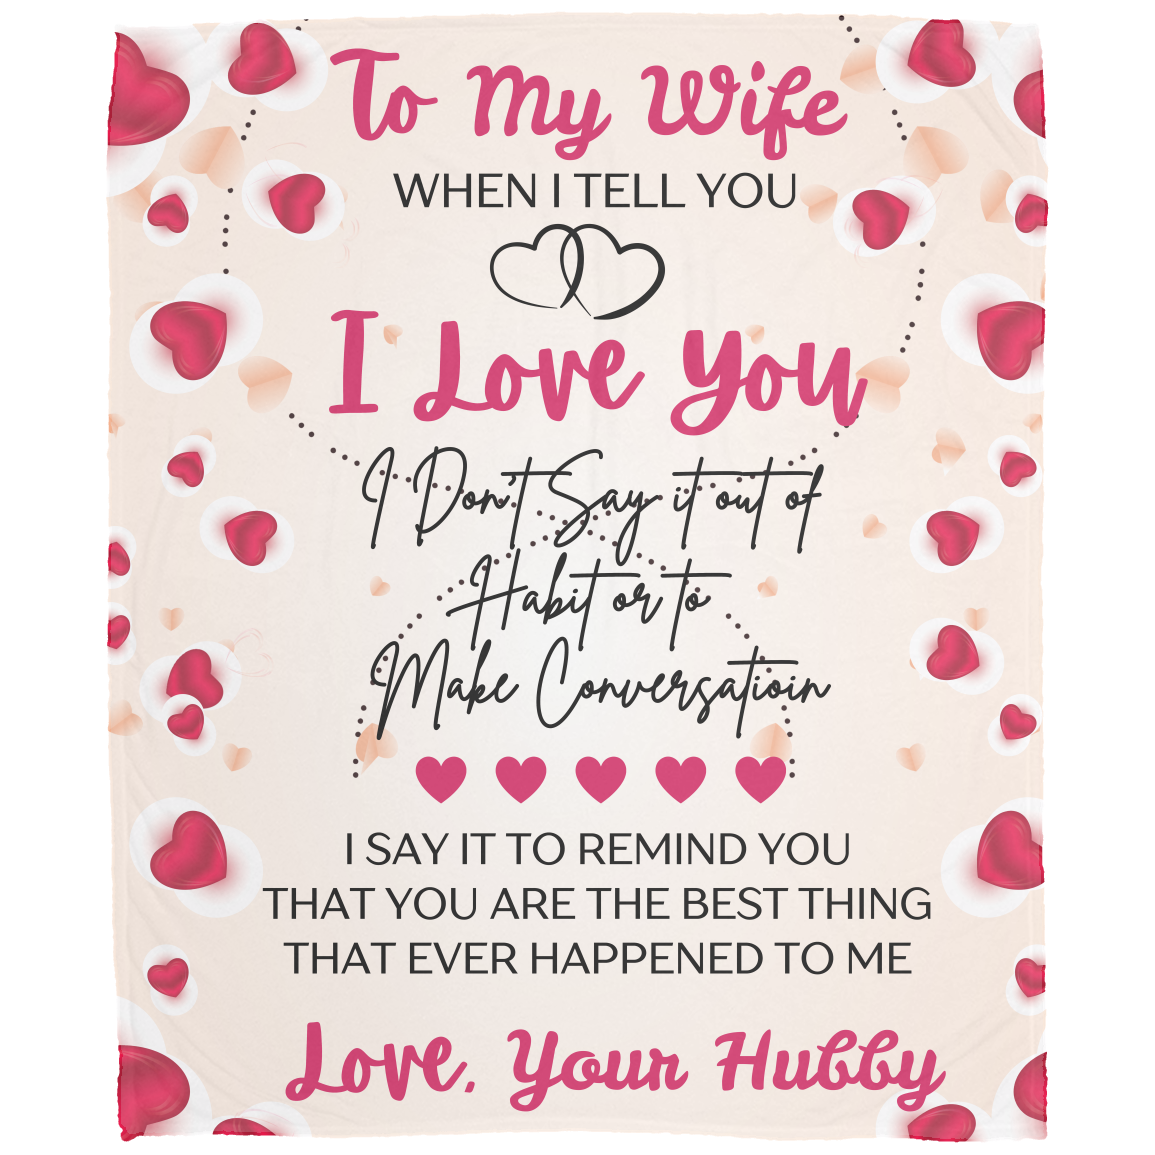 To My Wife
WHEN I TELL YOU
I Love You
I Don't Say it out of
Habit or to
Make Conversatioin
I SAY IT TO REMIND YOU
THAT YOU ARE THE BEST THING
THAT EVER HAPPENED TO ME
Love, Your Hubby